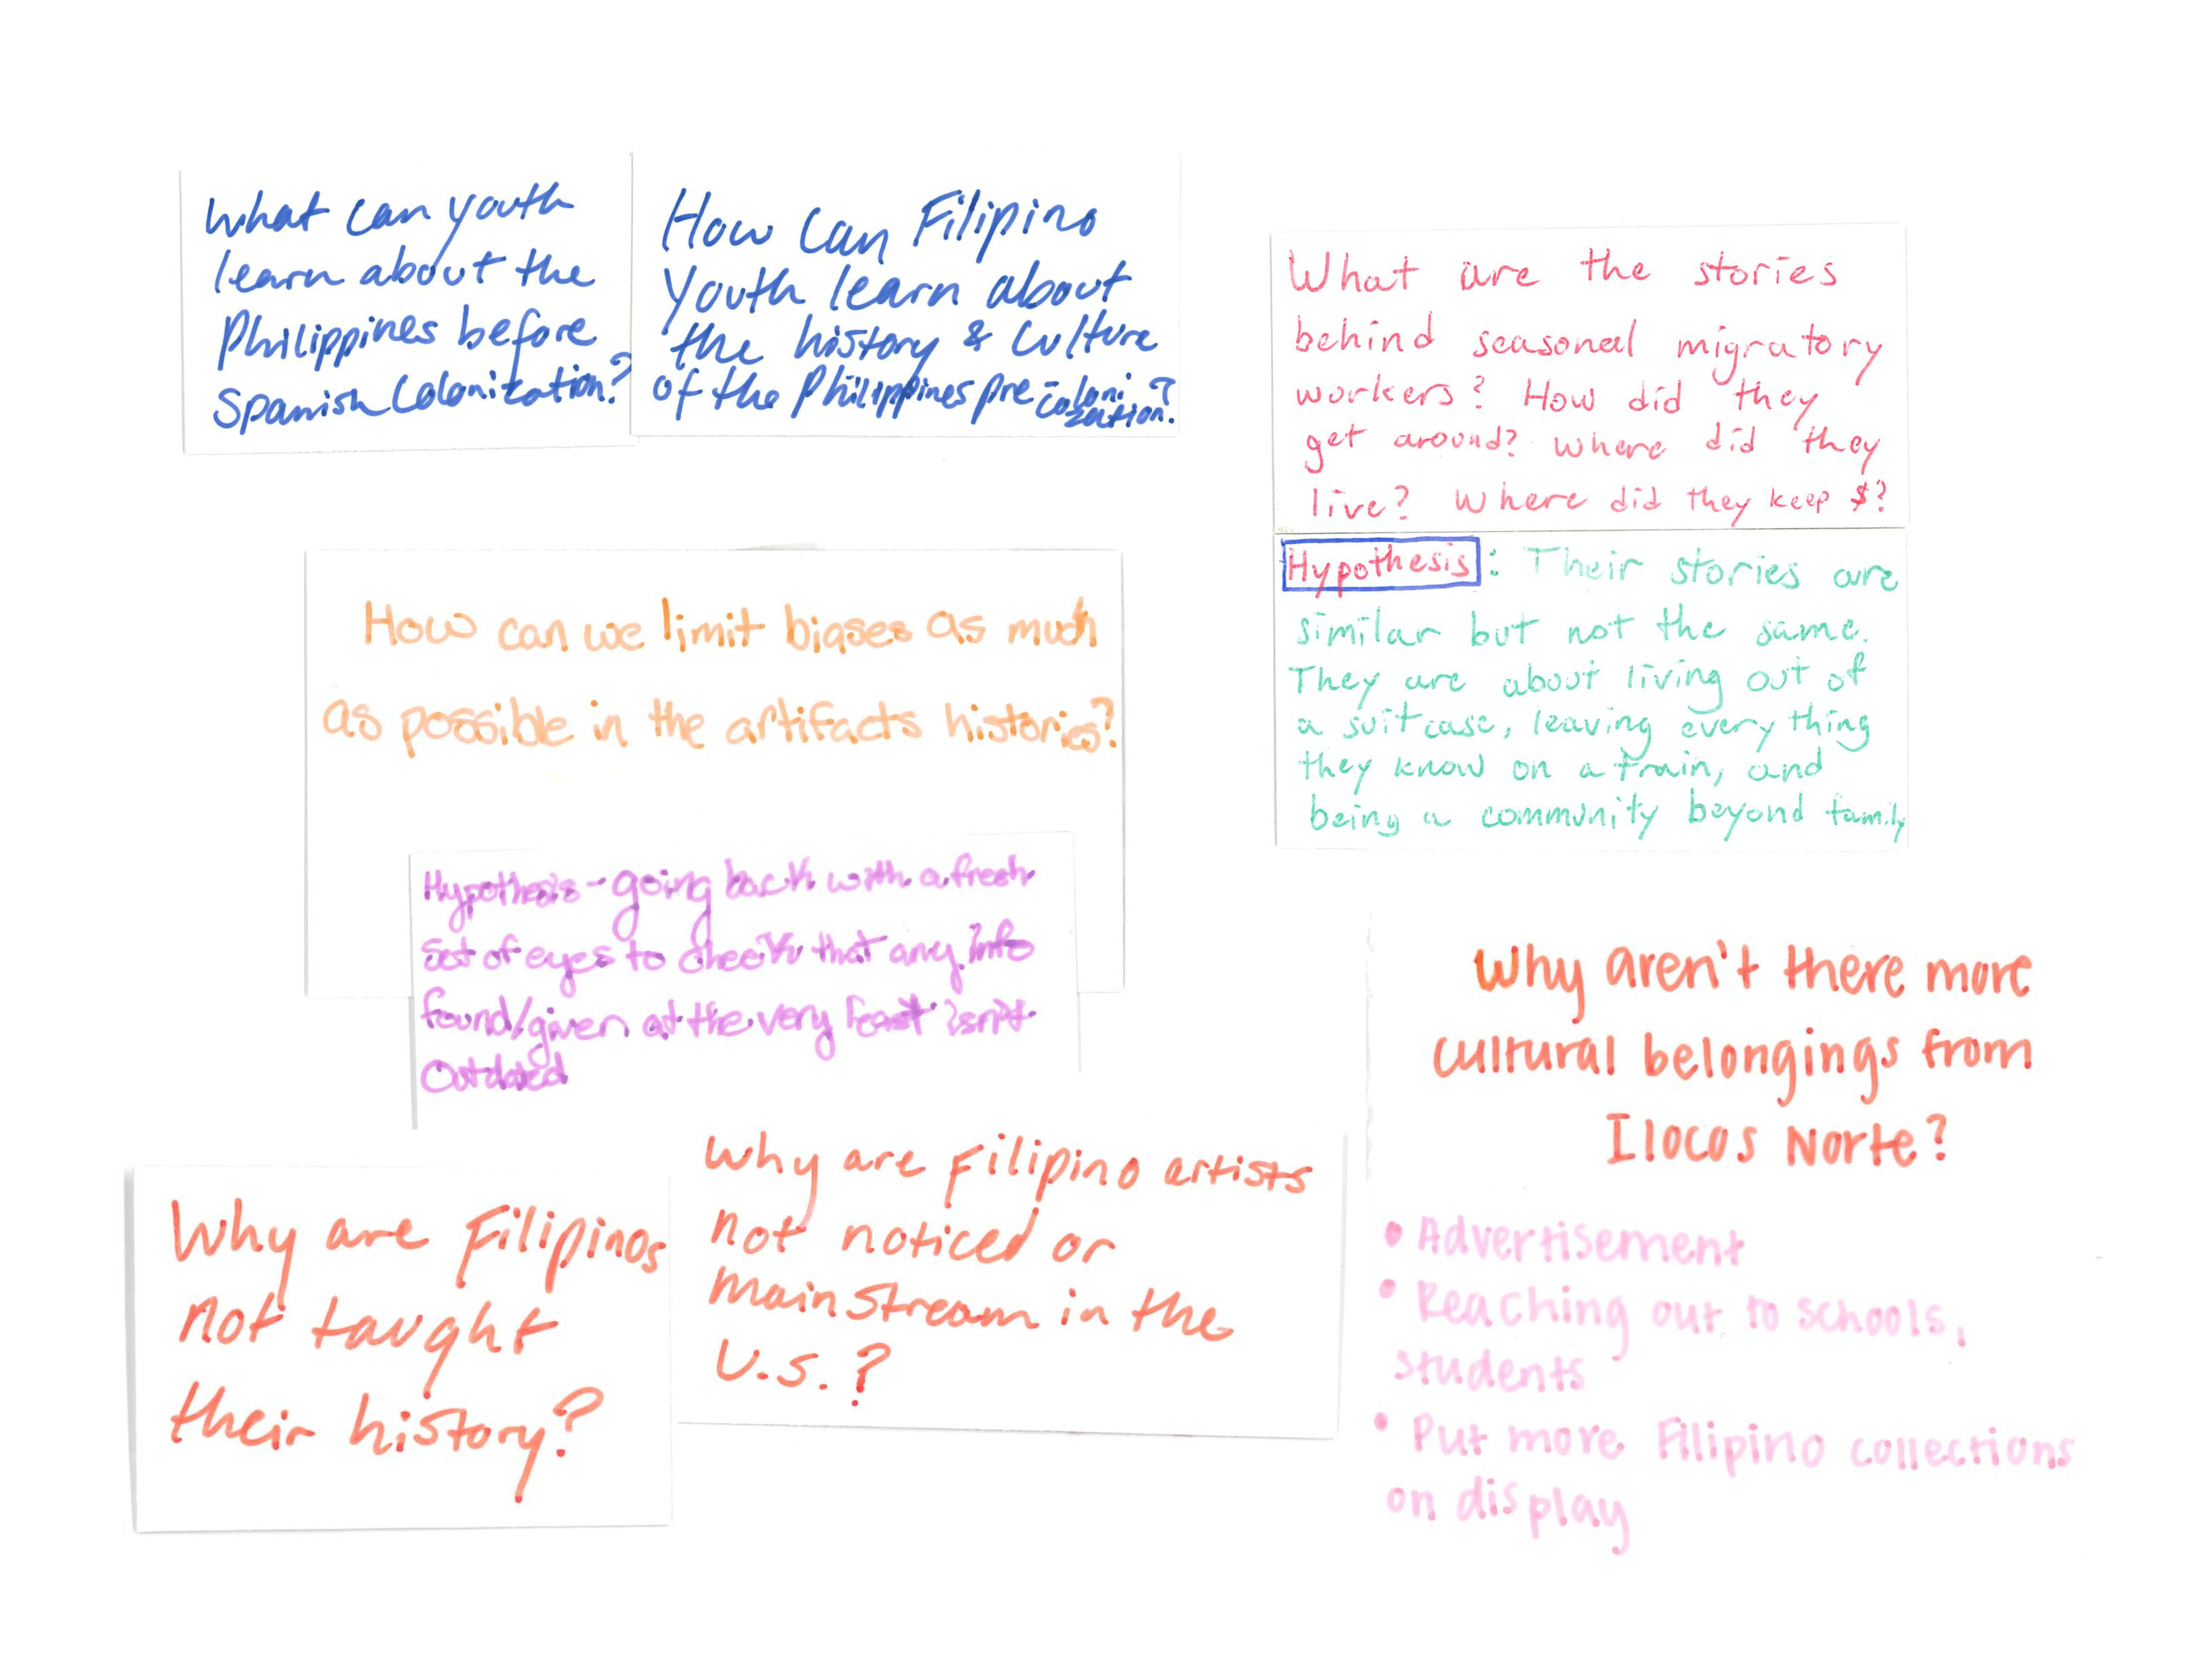 What can youth
learn about the
Philippines before
Spanish Colonization?
How can Filipino
youth learn about
the history & culture
of the Philippines pre-coloni
zation?
What are the stories
behind seasonal migratory
workers? How did they
get around? Where did they
live? Where did they keep $?
Hypothesis: Their stories are
similar but not the same.
They are about living out of
a suitcase, leaving every thing
they know on a train, and
being a community beyond family
How can we limit biases as much
as possible in the artifacts histories?
Hypothesis - going back with a fresh
set of eyes to check that any info
found/given at the very least isn't
Outdated
Why aren't there more
cultural belongings from
Ilocos Norte?
• Advertisement
• Reaching out to schools,
students
• Put more Filipino collections
on display
Why are Filipinos
not taught
their history?
Why are Filipino artists
not noticed or
mainstream in the
U.S.?